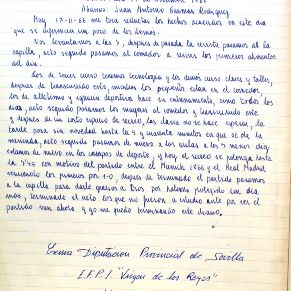 Alumno: Juan Antonio Guzman Rodriguez
Hoy 17-11-66 me toca redactar los hechos acaecidos en este día
que se diferencia un poco de los demas.
Nos levantamos a las 8, despues de pasada la revista pasamos al la
capilla, acto seguido pasamos al comedor a recibir los primeros alimentos
del día.
Los de tercer curso tenemos tecnología y los demas curso clases y talleres,
despues de transcurrido este, mientras los pequeños estan en el comedor,
los de atletismo y equipos deportivos hacen su entrenamiento, como todos los
dias, acto seguido pasamos los mayores al comedor y transcurrido este,
y despues de un corto espacio de recreo, las clases no se hacen esperar, la
tarde pasa sin novedad hasta la 5 y cuarenta minutos en que se dá la
merienda, acto seguido pasamos de nuevo a las aulas a las 7 menos diez
estamos de nuevo en los campos de deporte, y hoy el recreo se prolonga hasta
la 9'45 con motivo del partido entre el Munich 1860 y el Real Madrid,
venciendo los primeros por 1-0, despues de terminado el partido pasamos
a la capilla para darle gracias a Dios por habernos protegido un día
mas, terminado el acto los que no fueron a estudio ante por ver el
partido van ahora y yo me quedo terminando este diario.
Excma Diputacion Provincial de Sevilla
I.F.P.I "Virgen de los Reyes"